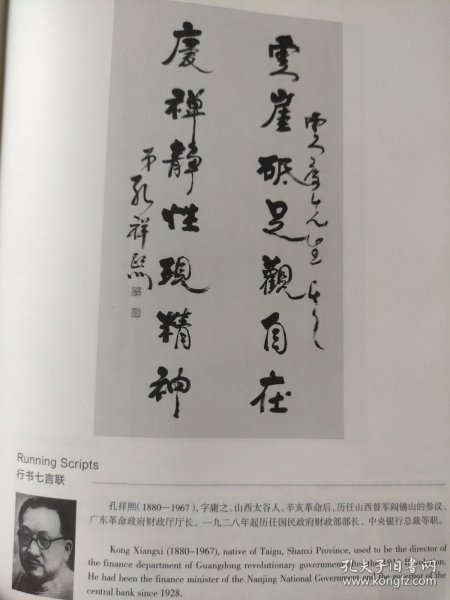 雲崖砥足觀自在
雲慶
慶禅静性現精神
弟孔祥熙
Running Scripts
行书七言联
孔祥熙(1880—1967),字庸之。山西太谷人。辛亥革命后,历任山西督军阎锡山的参议、
广东革命政府财政厅厅长。一九二八年起历任国民政府财政部部长、中央银行总裁等职。
Kong Xiangxi (1880-1967), native of Taigu, Shanxi Province, used to be the director of
the finance department of Guangdong revolutionary government
He had been the finance minister of the Nanjing National Government and the governor of the
central bank since 1928.
孔夫子旧书网